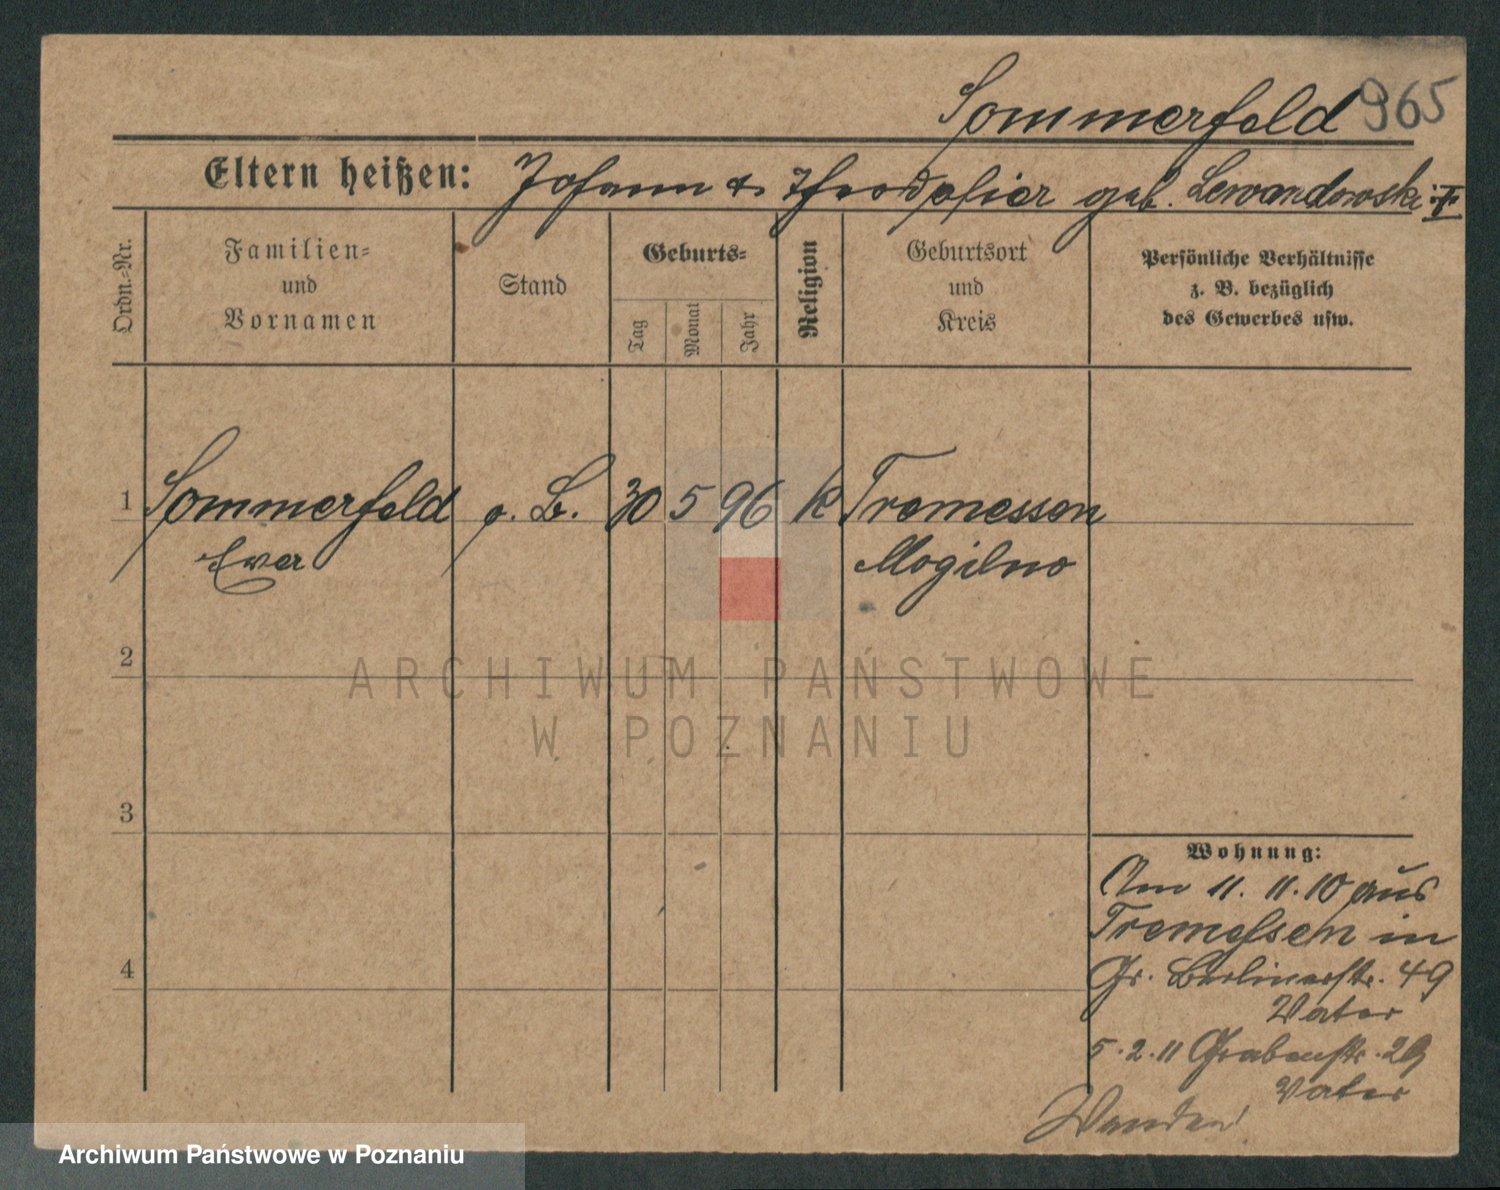 Sommerfeld 965
Eltern heißen: Johann & geb. Lewandowski
Ordn.-Nr.
Familien-
und
Vornamen
Stand
Geburts-
Tag
Monat
Jahr
Religion
Geburtsort
und
Kreis
Persönliche Verhältnisse
z. B. bezüglich
des Gewerbes usw.
1 Sommerfeld o. B. 30 5 96 k Tremessen
Eva Mogilno
2
ARCHIWUM PAŃSTWOWE
W POZNANIU
3
4
Wohnung:
Am 11. 11. 10 aus
Tremessen in
Gr. Berlinerstr. 49
Vater
5. 2. 11 Grabenstr. 29
Vater
Archiwum Państwowe w Poznaniu